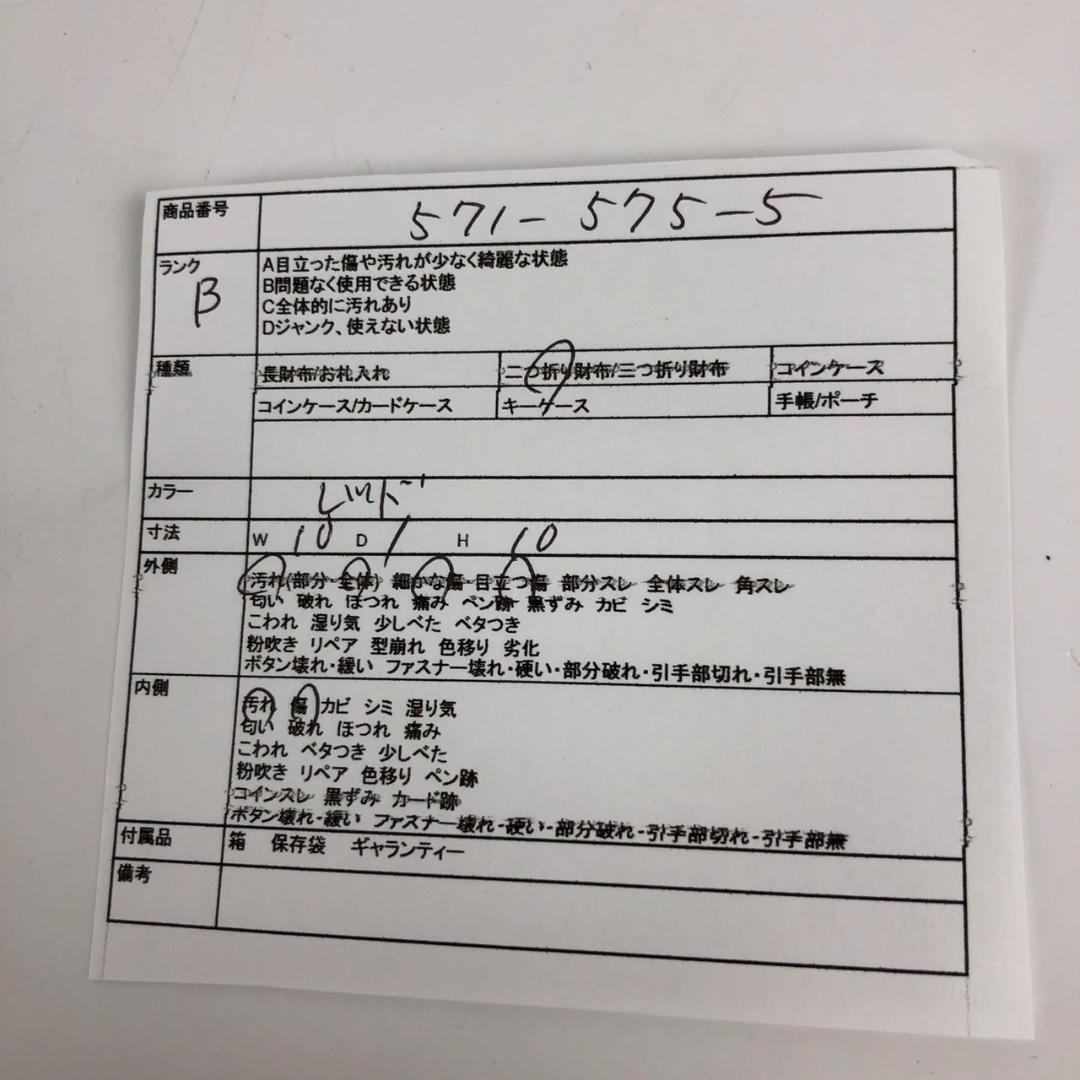 商品番号 571-575-5
ランク B
A目立った傷や汚れが少なく綺麗な状態
B問題なく使用できる状態
C全体的に汚れあり
Dジャンク、使えない状態
種類 長財布/お札入れ 二つ折り財布/三つ折り財布 コインケース
コインケース/カードケース キーケース 手帳/ポーチ
カラー レッド
寸法 W 10 D 1 H 10
外側 汚れ(部分・全体) 細かな傷・目立つ傷 部分スレ 全体スレ 角スレ
匂い 破れ ほつれ 痛み ペン跡 黒ずみ カビ シミ
こわれ 湿り気 少しべた ベタつき
粉吹き リペア 型崩れ 色移り 劣化
ボタン壊れ・緩い ファスナー壊れ・硬い・部分破れ・引手部切れ・引手部無
内側 汚れ 傷 カビ シミ 湿り気
匂い 破れ ほつれ 痛み
こわれ ベタつき 少しべた
粉吹き リペア 色移り ペン跡
コインスレ 黒ずみ カード跡
ボタン壊れ・緩い ファスナー壊れ・硬い・部分破れ・引手部切れ・引手部無
付属品 箱 保存袋 ギャランティー
備考